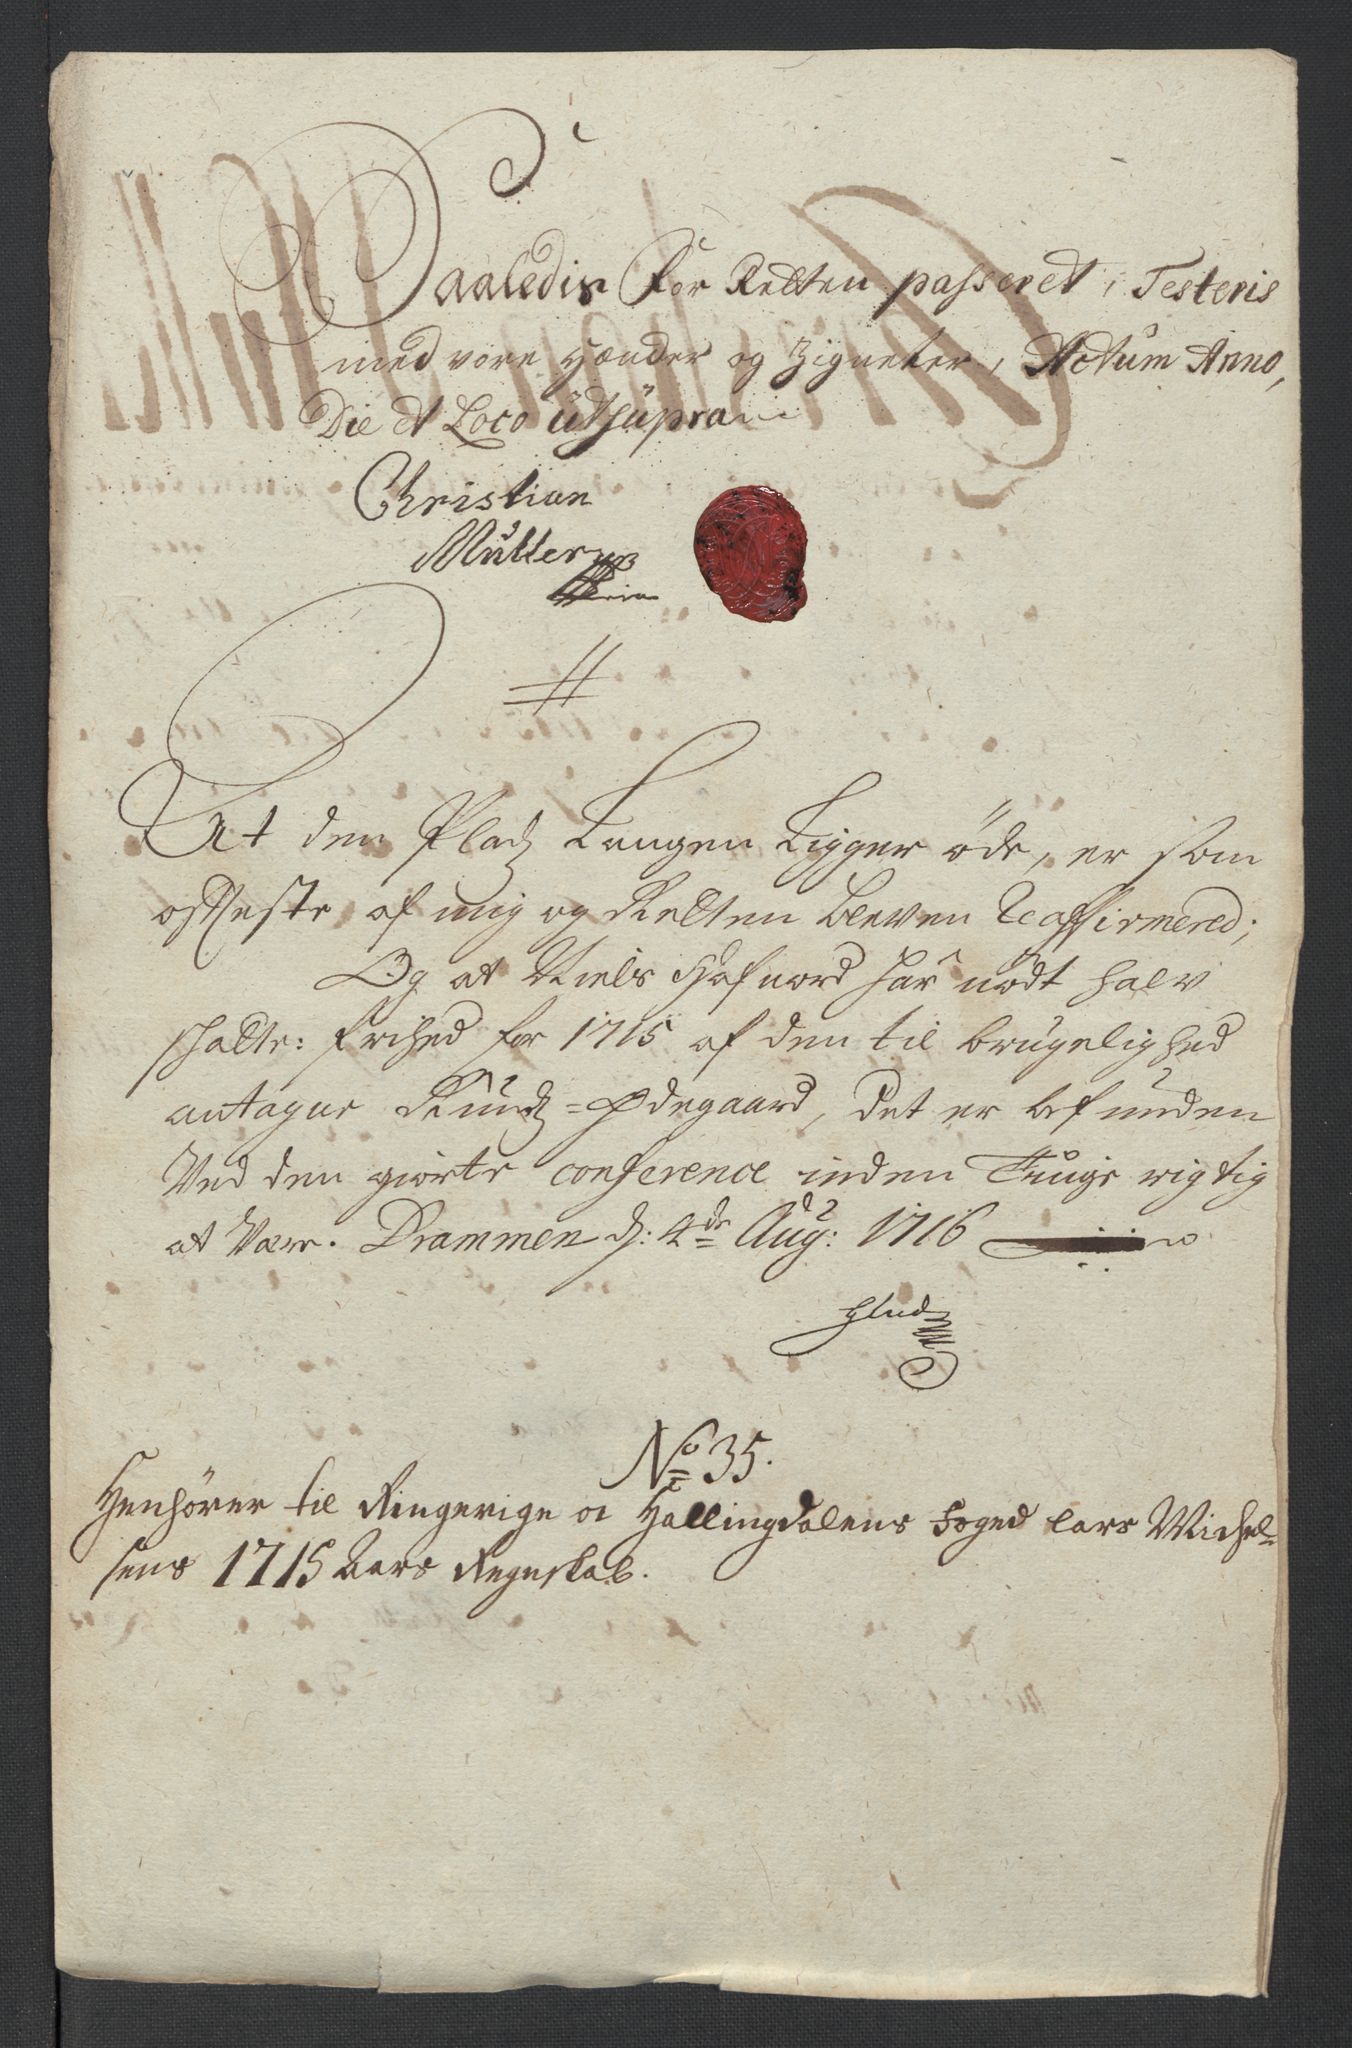 Saaledis For Retten passeret, Testeris
med vore Hænder og Zigneter, Actum Anno,
Die et Loco utsupra
Christian
Müller
At den Pladz Langen Ligger øde, er som
ofteste af mig og Retten bleven Reaffirmered;
Og at Niels har nødt halv
schatte: frihed for 1715 af den til brugelighed
antagne Rudz=Ødegaard, det er befunden
Ved den giorte conference inden Tinge rigtig
at være. Drammen d: 4de Aug: 1716
No 35.
Henhører til Ringerige oc Hallingdalens Foged Lars Michel-
sens 1715 Aars Regnskab.